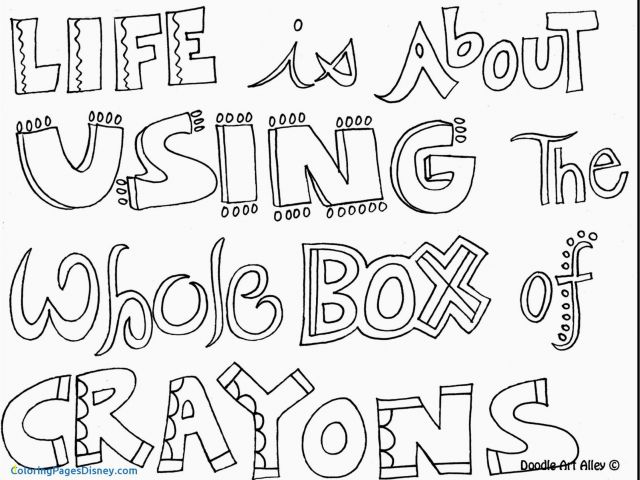 LIFE is ABOUT
USING THE
Whole BOX of
CRAYONS
Doodle Art Alley ©
ColoringPagesDisney.com